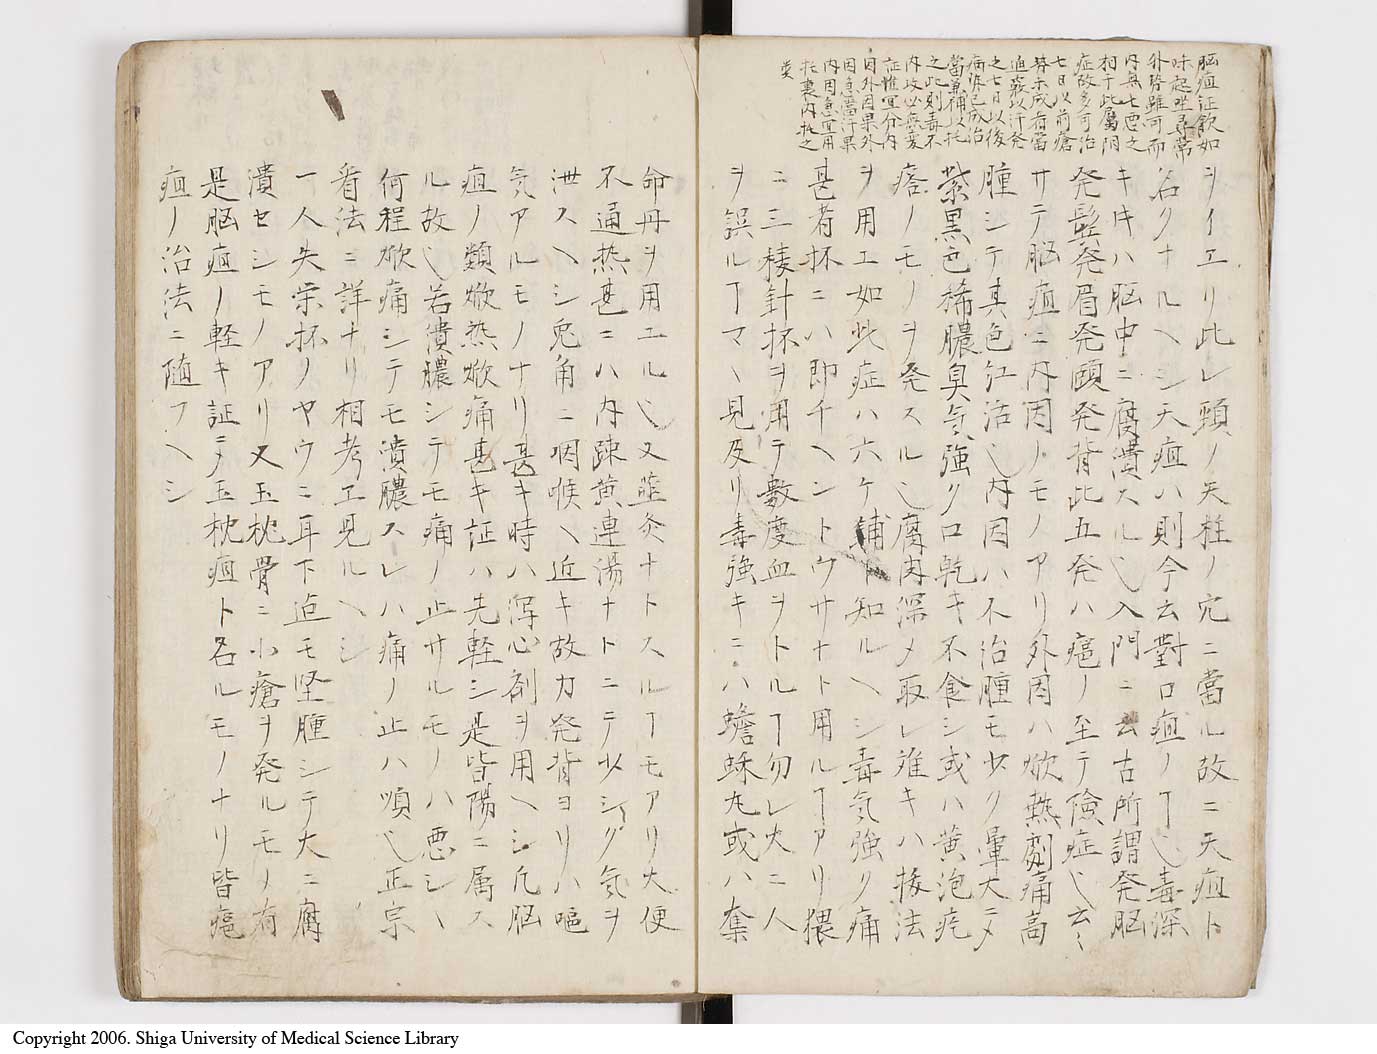 脳疽証飲如
味起坐尋常
外勢雖可而
内無七悪之
相干此属陽
症故多可治
七日以前瘡
勢未成者當
追竅以汗発
之七日以後
病勢已成治
當兼補以托
之此則毒不
内攻必無変
証惟宜分内
因外因果外
因急當汗果
内因急宜用
托裏内托之
ヲイエリ此レ頸ノ天柱ノ穴ニ當ル故ニ天疽ト
名クナルヘシ天疽ハ則今云對口疽ノヿ也毒深
キ片ハ脳中ニ腐潰スル也入門ニ云古所謂発脳
発髭発眉発頤発背此五発ハ癌ノ至テ険症也云々
サテ脳疽ニ内因ノモノアリ外因ハ焮熱劇痛高
腫シテ其色紅活也内因ハ不治腫モ少ク暈大ニ〆
紫黒色稀膿臭気強ク口乾キ不食シ或ハ黄泡疙
瘩ノモノヲ発スル也腐肉深メ取レ難キハ抜法
ヲ用エ如此症ハ六ケ鋪ト知ルヘシ毒気強ク痛
甚者抔ニハ即チヘントウサナト用ルヿアリ猥
ニ三稜針抔ヲ用テ數度血ヲトルヿ勿レ大ニ人
ヲ誤ルヿマヽ見及リ毒強キニハ蟾酥丸或ハ奪
命丹ヲ用エル也又薤灸ナトスルヿモアリ大便
不通熱甚ニハ内疎黄連湯ナトニテ少シク気ヲ
泄スヘシ兎角ニ咽喉ヘ近キ故力発背ヨリハ嘔
気アルモノナリ甚キ時ハ瀉心剤ヲ用ヘシ凡脳
疽ノ類焮熱焮痛甚キ証ハ先軽シ是皆陽ニ属ス
ル故也若潰膿シテモ痛ノ止サルモノハ悪シヽ
何程焮痛シテモ潰膿スレハ痛ノ止ハ順也正宗
看法ニ詳ナリ相考エ見ルヘシ
一人失栄抔ノヤウニ耳下迠モ堅腫シテ大ニ腐
潰セシモノアリ又玉枕骨ニ小瘡ヲ発ルモノ有
是脳疽ノ軽キ証ニ〆玉枕疽ト名ルモノナリ皆癌
疽ノ治法ニ随フヘシ
Copyright 2006. Shiga University of Medical Science Library